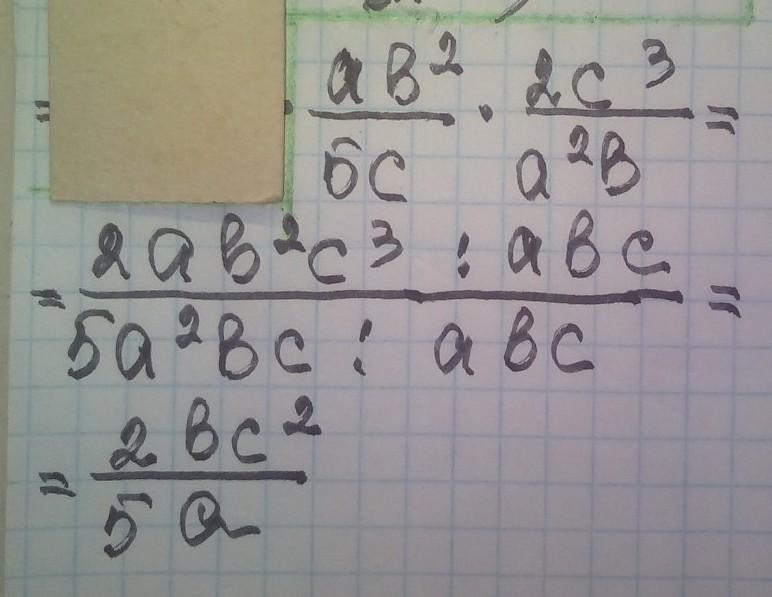 = · ab²/5c · 2c³/a²b =
= 2ab²c³ : abc / 5a²bc : abc =
= 2bc²/5a